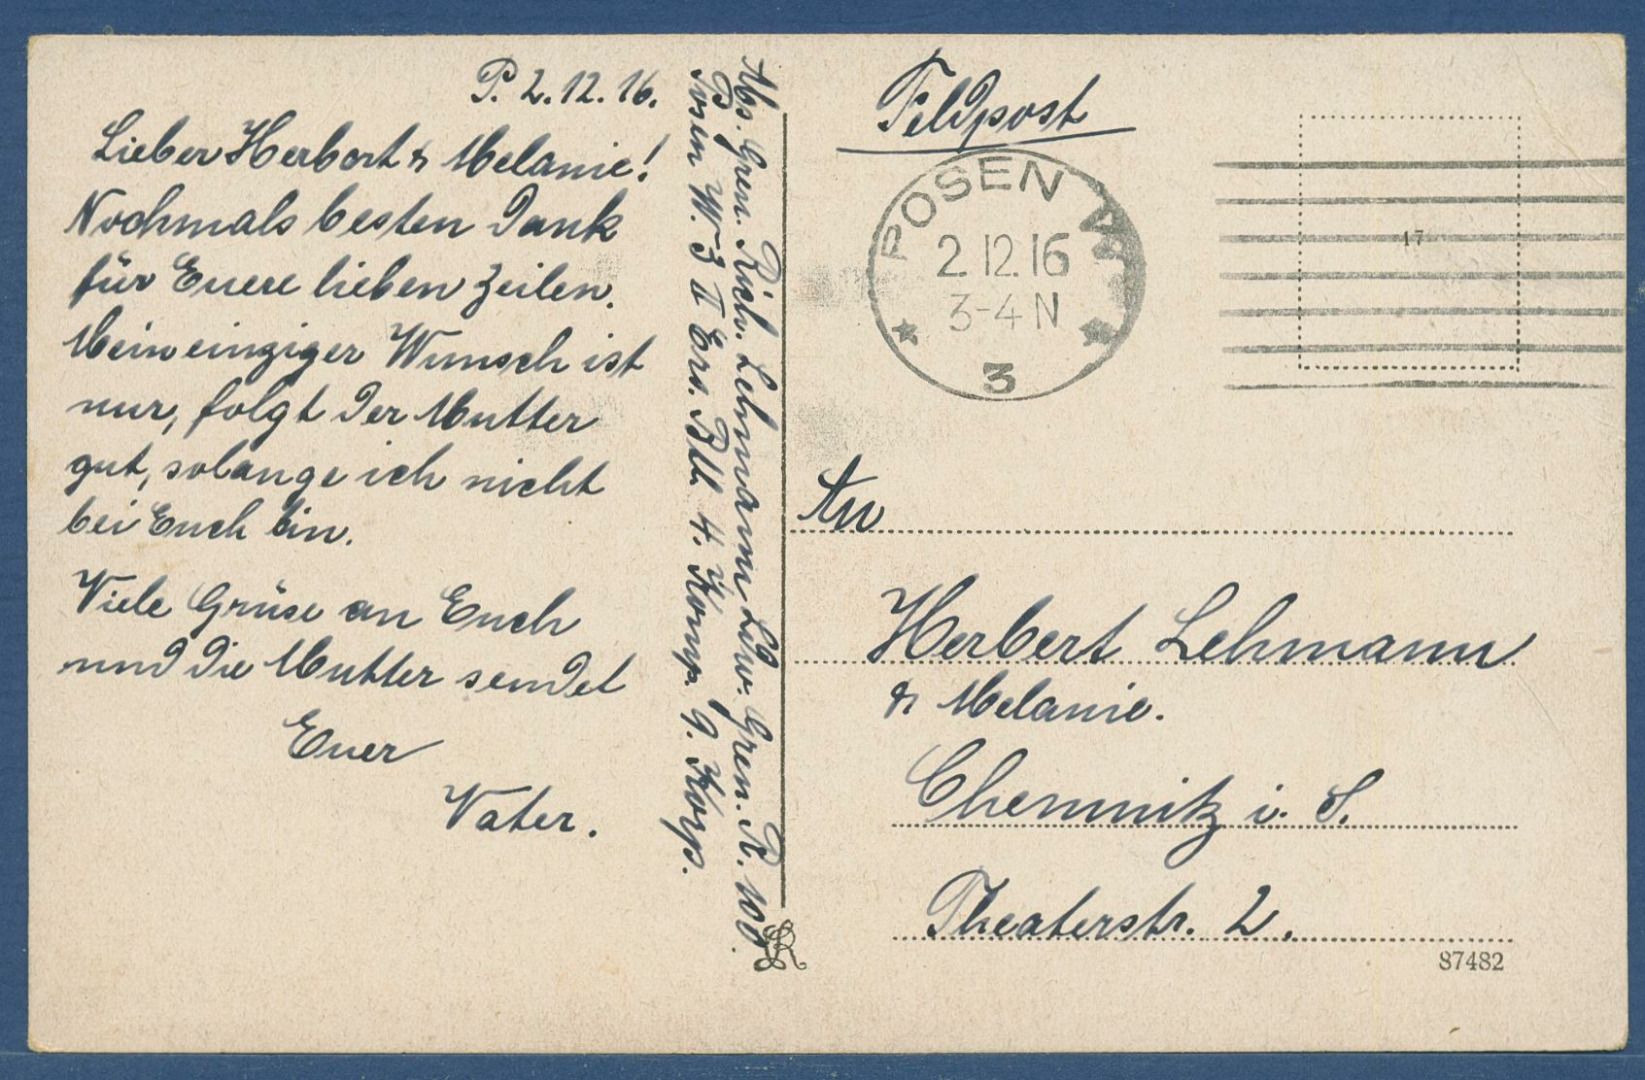 P. 2.12.16.
Lieber Herbert & Melanie!
Nochmals besten Dank
für Euere lieben Zeilen.
Mein einziger Wunsch ist
nur, folgt der Mutter
gut, solange ich nicht
bei Euch bin.
Viele Grüse an Euch
und die Mutter sendet
Euer
Vater.
Abs. Gren. Rich. Lehmann Ldw. Gren. R. 100.
Posen W. 3 II Ers. Btl. 4. Komp. 9. Korp.
Feldpost
POSEN W.
2.12.16
3-4 N
3
17
An
Herbert Lehmann
& Melanie.
Chemnitz i. S.
Theaterstr. 2.
87482